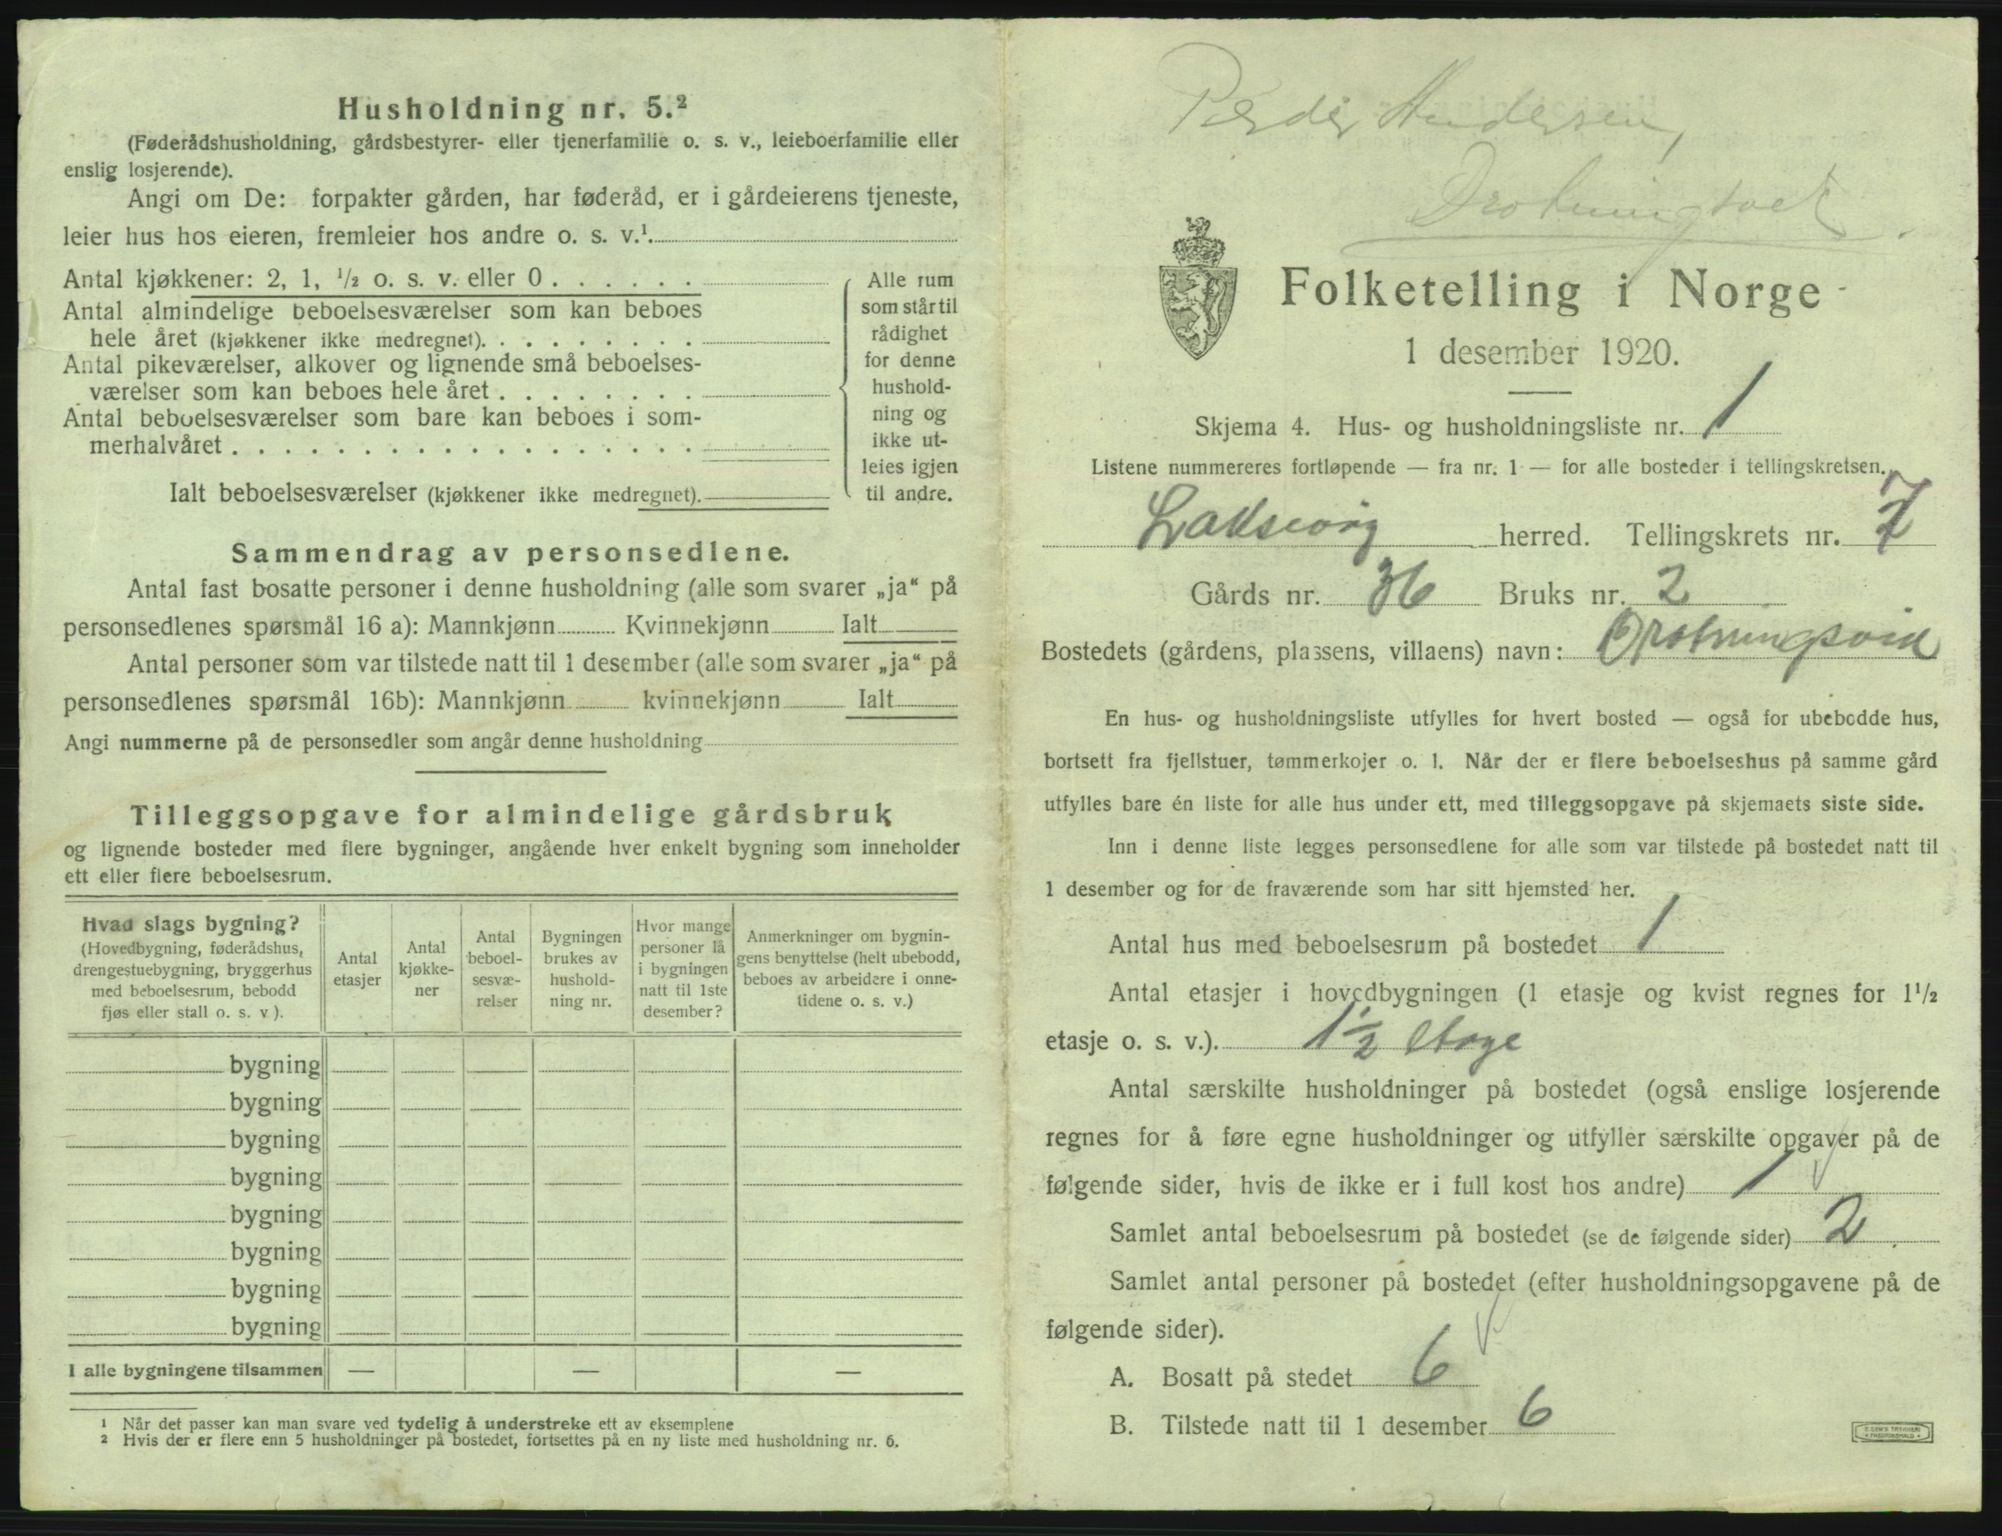 Husholdning nr. 5.²
(Føderådshusholdning, gårdsbestyrer- eller tjenerfamilie o. s. v., leieboerfamilie eller
enslig losjerende).
Angi om De: forpakter gården, har føderåd, er i gårdeierens tjeneste,
leier hus hos eieren, fremleier hos andre o. s. v.¹
Antal kjøkkener: 2, 1, ½ o. s. v. eller 0
Antal almindelige beboelsesværelser som kan beboes
hele året (kjøkkener ikke medregnet).
Antal pikeværelser, alkover og lignende små beboelses-
værelser som kan beboes hele året
Antal beboelsesværelser som bare kan beboes i som-
merhalvåret
Ialt beboelsesværelser (kjøkkener ikke medregnet).
Alle rum
som står til
rådighet
for denne
hushold-
ning og
ikke ut-
leies igjen
til andre.
Sammendrag av personsedlene.
Antal fast bosatte personer i denne husholdning (alle som svarer „ja“ på
personsedlenes spørsmål 16 a): Mannkjønn Kvinnekjønn Ialt
Antal personer som var tilstede natt til 1 desember (alle som svarer „ja“ på
personsedlenes spørsmål 16b): Mannkjønn kvinnekjønn Ialt
Angi nummerne på de personsedler som angår denne husholdning
Tilleggsopgave for almindelige gårdsbruk
og lignende bosteder med flere bygninger, angående hver enkelt bygning som inneholder
ett eller flere beboelsesrum.
Hvad slags bygning?
(Hovedbygning, føderådshus,
drengestuebygning, bryggerhus
med beboelsesrum, bebodd
fjøs eller stall o. s. v ).
Antal
etasjer
Antal
kjøkke-
ner
Antal
beboel-
sesvæ-
relser
Bygningen
brukes av
hushold-
ning nr.
Hvor mange
personer lå
i bygningen
natt til 1ste
desember?
Anmerkninger om bygnin-
gens benyttelse (helt ubebodd,
beboes av arbeidere i onne-
tidene o. s. v.)
bygning
bygning
bygning
bygning
bygning
bygning
bygning
bygning
I alle bygningene tilsammen — — —
¹ Når det passer kan man svare ved tydelig å understreke ett av eksemplene
² Hvis der er flere enn 5 husholdninger på bostedet, fortsettes på en ny liste med husholdning nr. 6.
Peder Andersen,
Folketelling i Norge
1 desember 1920.
Skjema 4. Hus- og husholdningsliste nr. 1
Listene nummereres fortløpende — fra nr. 1 — for alle bosteder i tellingskretsen.
Laksevåg herred. Tellingskrets nr. 7
Gårds nr. 36 Bruks nr. 2
Bostedets (gårdens, plassens, villaens) navn: Drotningsvik
En hus- og husholdningsliste utfylles for hvert bosted — også for ubebodde hus,
bortsett fra fjellstuer, tømmerkojer o. l. Når der er flere beboelseshus på samme gård
utfylles bare én liste for alle hus under ett, med tilleggsopgave på skjemaets siste side.
Inn i denne liste legges personsedlene for alle som var tilstede på bostedet natt til
1 desember og for de fraværende som har sitt hjemsted her.
Antal hus med beboelsesrum på bostedet 1
Antal etasjer i hovedbygningen (1 etasje og kvist regnes for 1½
etasje o. s. v.). 1½ Etage
Antal særskilte husholdninger på bostedet (også enslige losjerende
regnes for å føre egne husholdninger og utfyller særskilte opgaver på de
følgende sider, hvis de ikke er i full kost hos andre) 1
Samlet antal beboelsesrum på bostedet (se de følgende sider) 2
Samlet antal personer på bostedet (efter husholdningsopgavene på de
følgende sider).
A. Bosatt på stedet 6
B. Tilstede natt til 1 desember 6